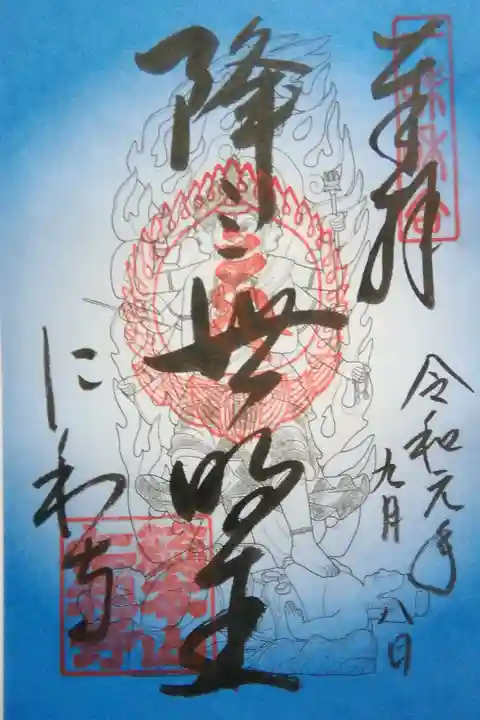 奉拝
令和元年
九月八日
降三世明王
にわ寺